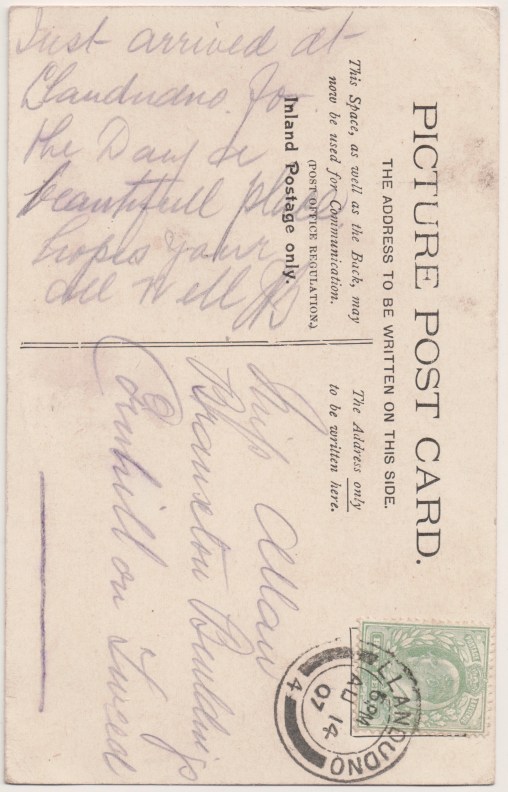 PICTURE POST CARD.
THE ADDRESS TO BE WRITTEN ON THIS SIDE.
This Space, as well as the Back, may
now be used for Communication.
(POST OFFICE REGULATION.)
Inland Postage only.
The Address only
to be written here.
Just arrived at
Llandudno for
the Day a
beautifull place
hopes your
all well
Miss Allan
Branxton Buildings
Cornhill on Tweed
LLANDUDNO
6 PM
AU 14
07
4